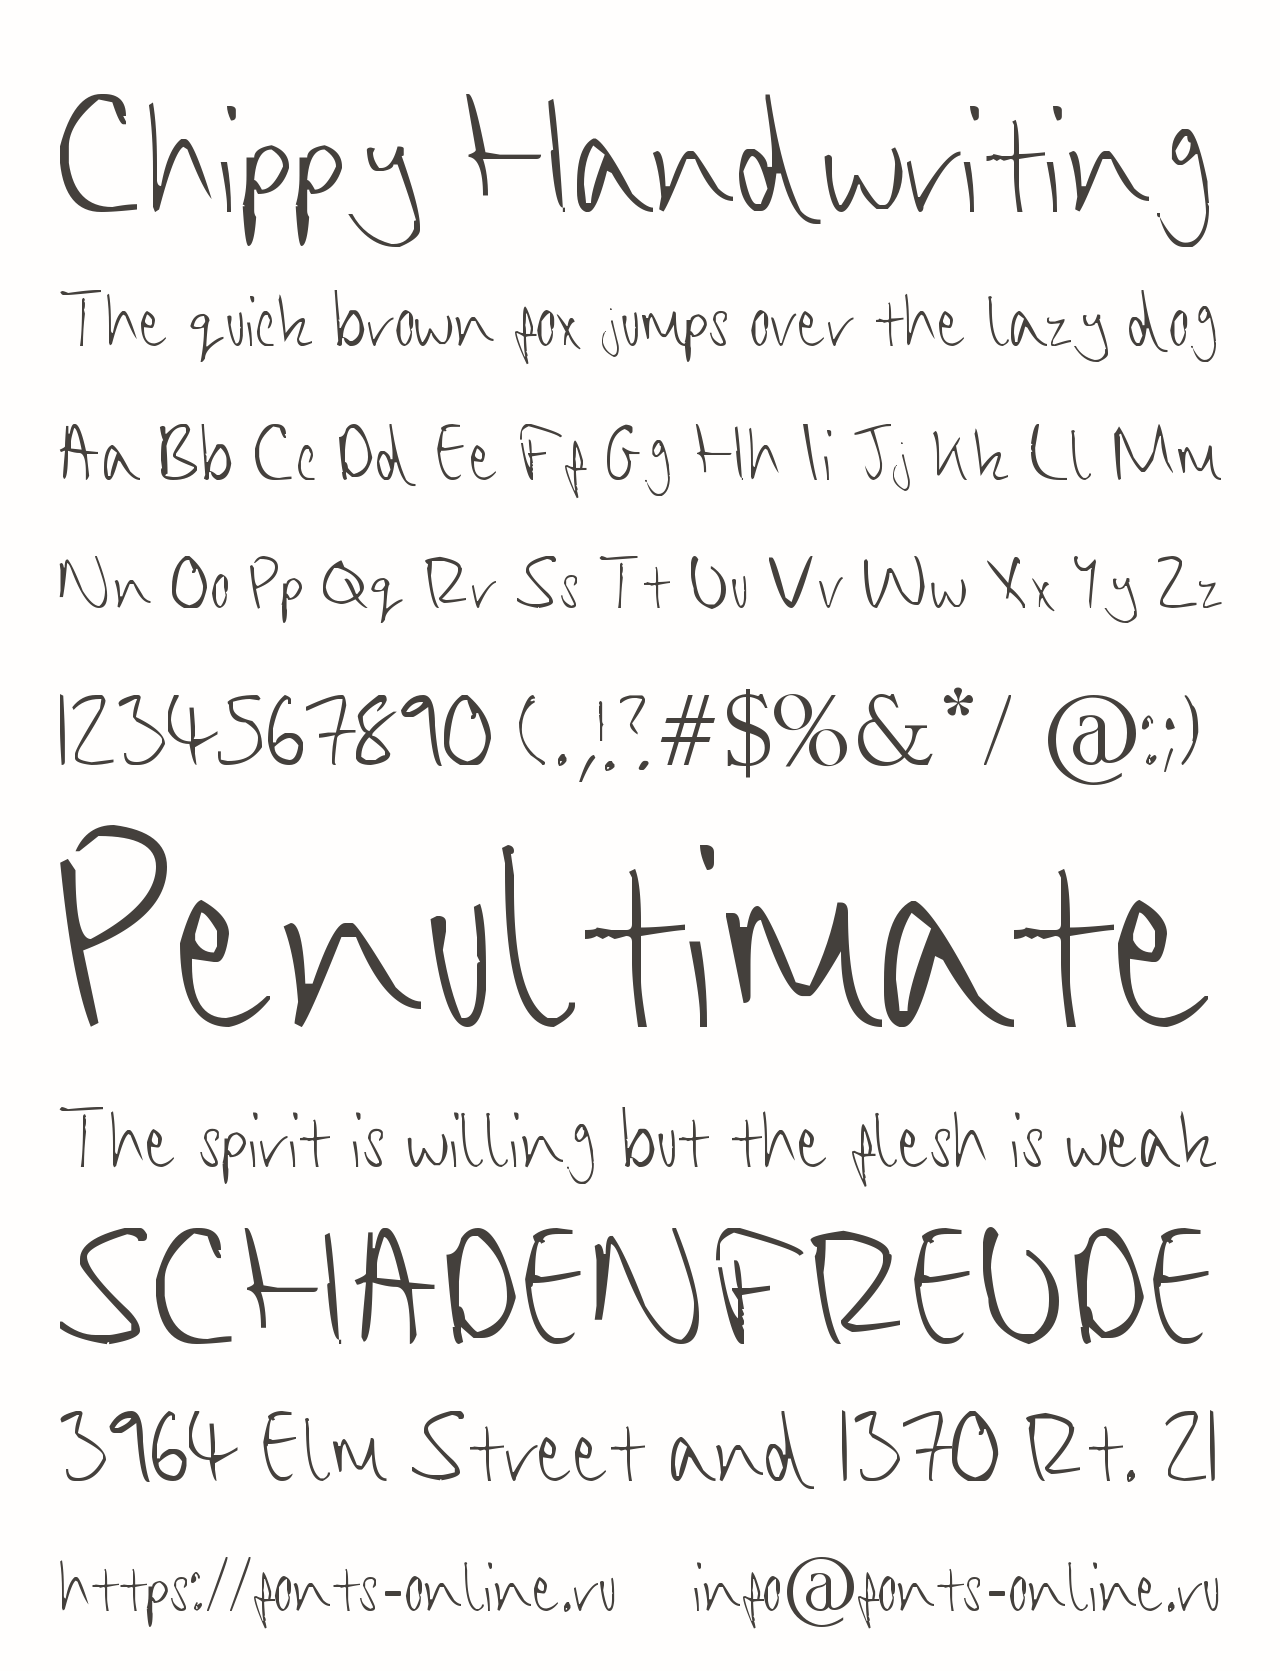 Chippy Handwriting
The quick brown fox jumps over the lazy dog
Aa Bb Cc Dd Ee Ff Gg Hh Ii Jj Kk Ll Mm
Nn Oo Pp Qq Rr Ss Tt Uu Vv Ww Xx Yy Zz
1234567890 (.,!?#$%&*/ @:;)
Penultimate
The spirit is willing but the flesh is weak
SCHADENFREUDE
3964 Elm Street and 1370 Rt. 21
https://fonts-online.ru info@fonts-online.ru